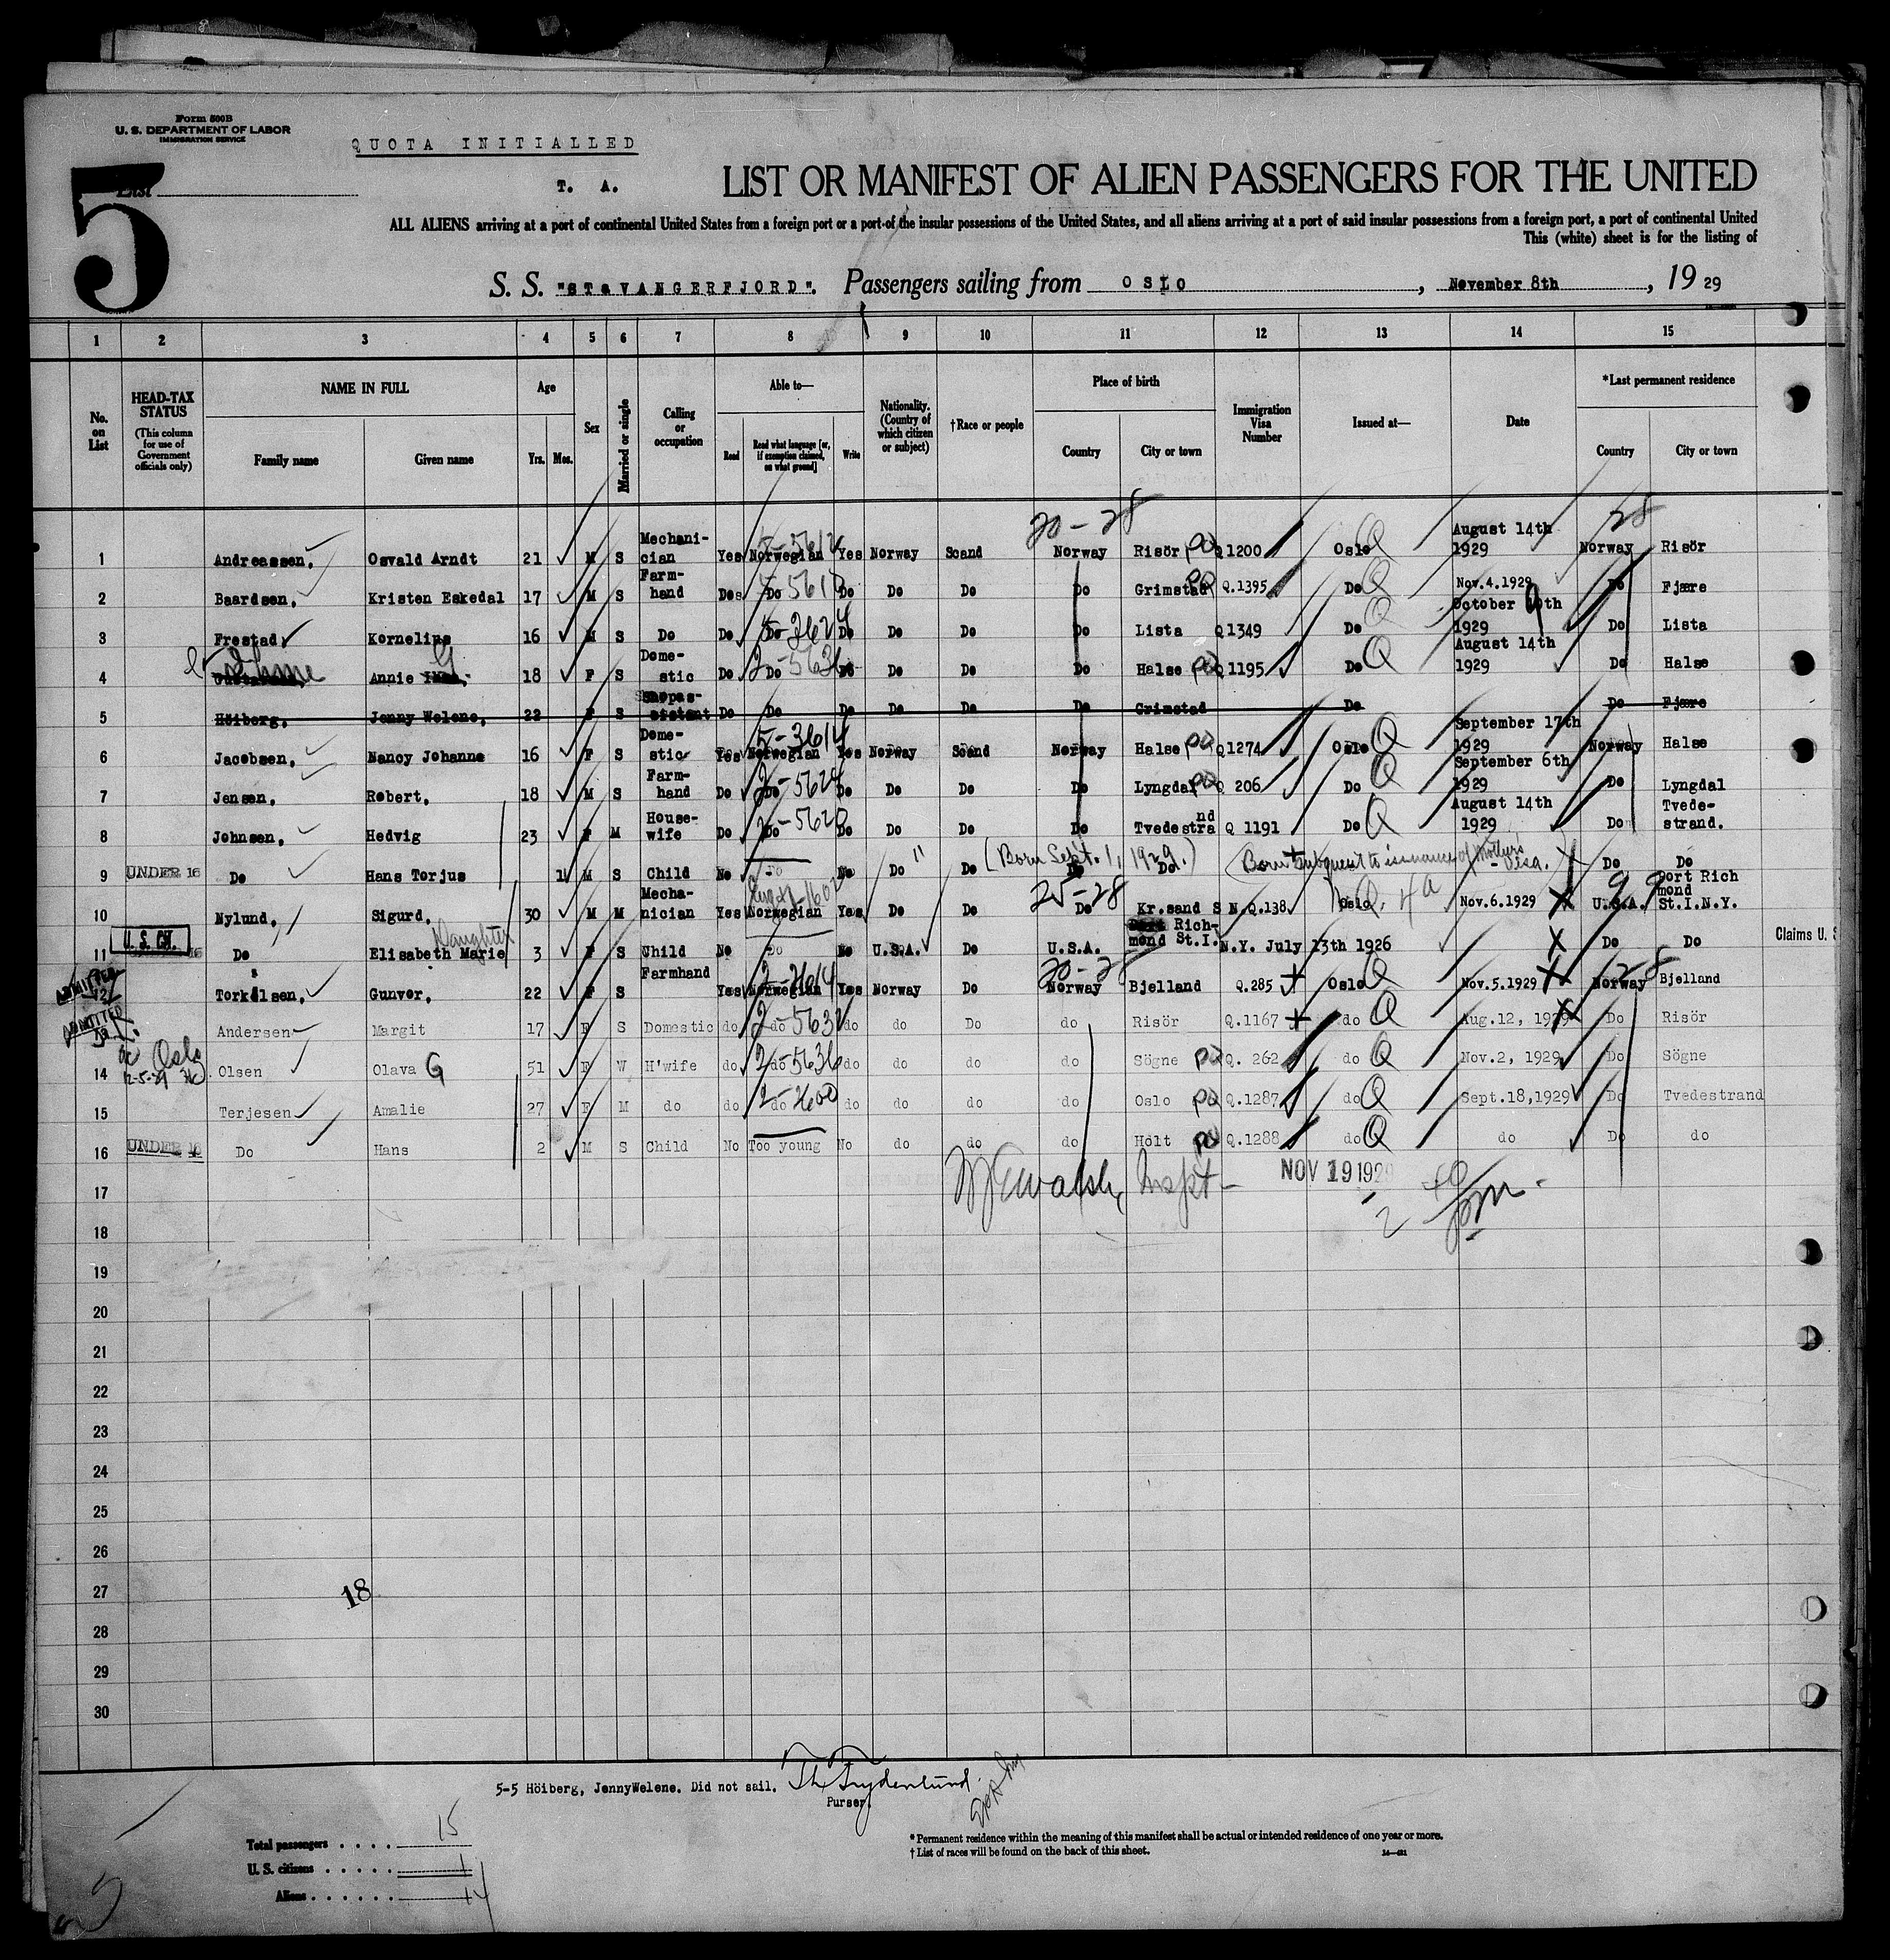 Form 500B
U. S. DEPARTMENT OF LABOR
IMMIGRATION SERVICE
QUOTA INITIALLED
T. A.
List
5
LIST OR MANIFEST OF ALIEN PASSENGERS FOR THE UNITED
ALL ALIENS arriving at a port of continental United States from a foreign port or a port of the insular possessions of the United States, and all aliens arriving at a port of said insular possessions from a foreign port, a port of continental United
This (white) sheet is for the listing of
S. S. "STAVANGERFJORD". Passengers sailing from OSLO, November 8th, 19 29
1 2 3 4 5 6 7 8 9 10 11 12 13 14 15
No. on List
HEAD-TAX STATUS (This column for use of Government officials only)
NAME IN FULL
Family name Given name
Age
Yrs. Mos.
Sex
Married or single
Calling or occupation
Able to—
Read Read what language [or, if exemption claimed, on what ground] Write
Nationality. (Country of which citizen or subject)
†Race or people
Place of birth
Country City or town
Immigration Visa Number
Issued at—
Date
*Last permanent residence
Country City or town
20-28 28
1 Andreassen, Osvald Arndt 21 M S Mechanician Yes Norwegian Yes Norway Scand Norway Risör Q1200 Oslo August 14th 1929 Norway Risör
2 Baardsen, Kristen Eskedal 17 M S Farmhand Do Do Do Do Do Do Grimstad Q.1395 Do Nov.4.1929 Do Fjære
3 Frestad, Kornelius 16 M S Do Do Do Do Do Do Do Lista Q1349 Do October 1929 Do Lista
4 Annie 18 F S Domestic Do Do Do Do Do Do Halse Q1195 Do August 14th 1929 Do Halse
5 Höiberg, Jenny Welene, 22 F S Shopassistant Do Do Do Do Do Do Grimstad Do Do Fjære
6 Jacobsen, Nancy Johanne 16 F S Domestic Yes Norwegian Yes Norway Scand Norway Halse Q1274 Oslo September 17th 1929 Norway Halse
7 Jensen, Robert, 18 M S Farmhand Do Do Do Do Do Do Lyngdal Q 206 Do September 6th 1929 Do Lyngdal
8 Johnsen, Hedvig 23 F M Housewife Do Do Do Do Do Do Tvedestrand Q 1191 Do August 14th 1929 Do Tvedestrand.
(Born Sept. 1, 1929.) Born subquent to issuance of Mothers Visa.
9 UNDER 16 Do Hans Torjus M S Child No Do No Do Do Do Do Do Do
25-28
10 Nylund, Sigurd, 30 M M Mechanician Yes Norwegian Yes Do Do Do Kr.sand S N.Q.138 Oslo Nov.6.1929 U.S.A. Port Richmond St.I.N.Y.
Daughter
11 U. S. CIT. Do Elisabeth Marie 3 F S Child No Do No U.S.A. Do U.S.A. Richmond St.I. N.Y. July 13th 1926 Do Do Claims U. S
20-28 28
ADMITTED 12 Torkelsen, Gunvor, 22 F S Farmhand Yes Norwegian Yes Norway Do Norway Bjelland Q.285 Oslo Nov.5.1929 Norway Bjelland
ADMITTED Andersen Margit 17 F S Domestic do do do do Do do Risör Q.1167 do Aug.12, 1929 Do Risör
Oslo
12-5-29
14 Olsen Olava G 51 F W H'wife do do do do do do Sögne Q. 262 do Nov.2, 1929 Do Sögne
15 Terjesen Amalie 27 F M do do do do do do do Oslo Q.1287 do Sept.18,1929 Do Tvedestrand
16 UNDER 16 Do Hans 2 M S Child No Too young No do do do Holt Q.1288 do do Do do
17
Inspt- NOV 19 1929
18
19
20
21
22
23
24
25
26
27
18
28
29
30
5-5 Höiberg, JennyWelene. Did not sail.
Purser.
Total passengers .... 15
U. S. citizens ..... 1
Aliens ...... 14
* Permanent residence within the meaning of this manifest shall be actual or intended residence of one year or more.
† List of races will be found on the back of this sheet.